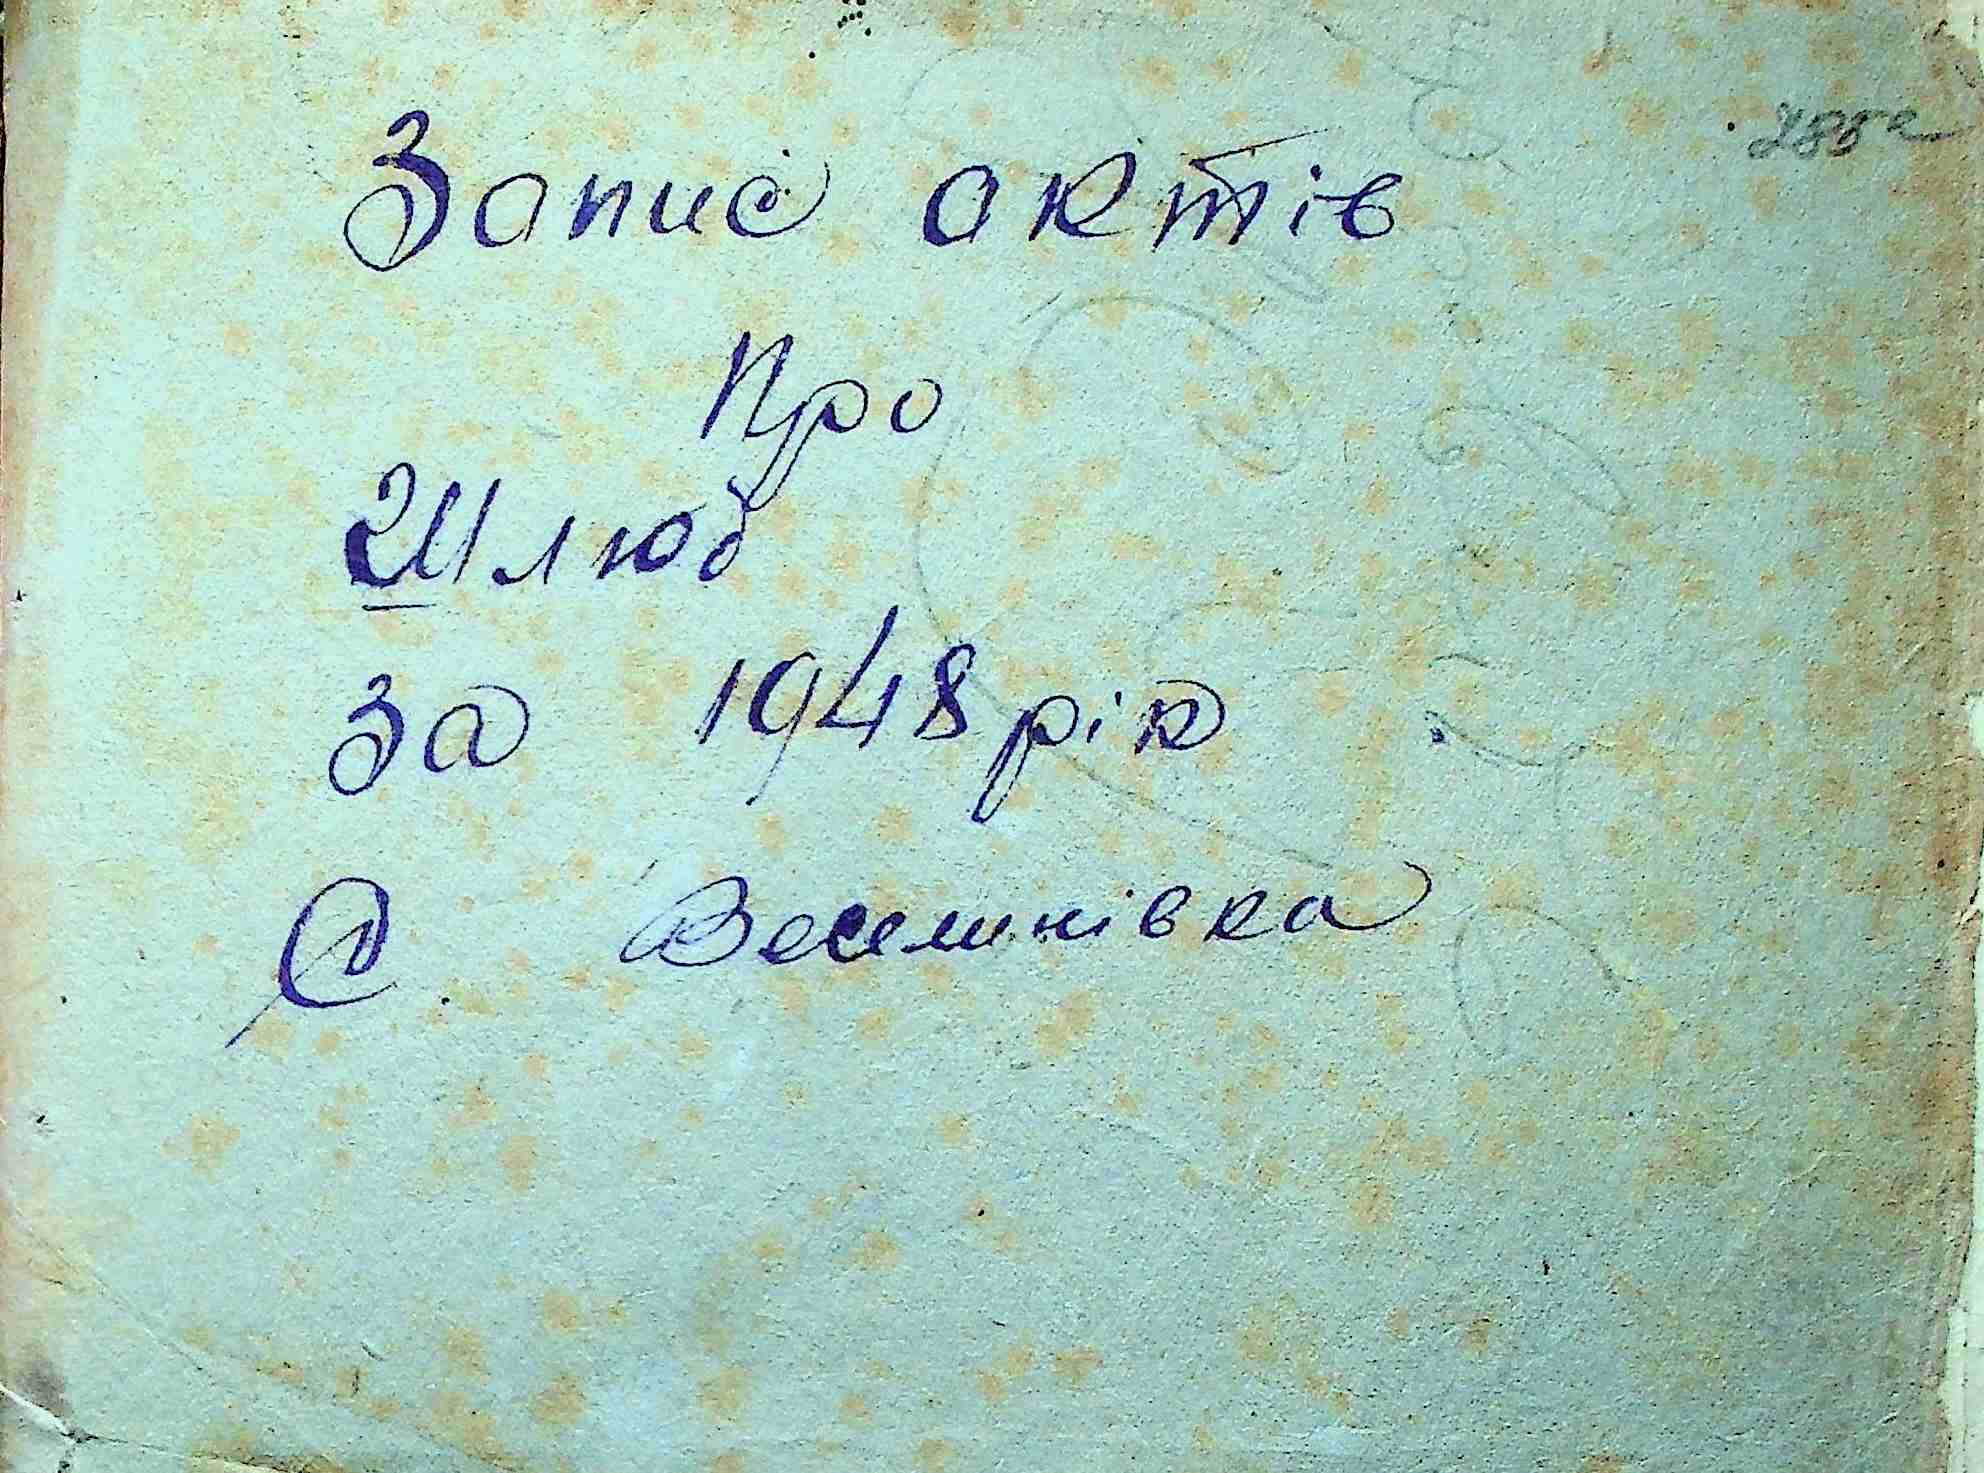 Запис актів
Про
Шлюб
за 1948 рік
С. Веселинівка